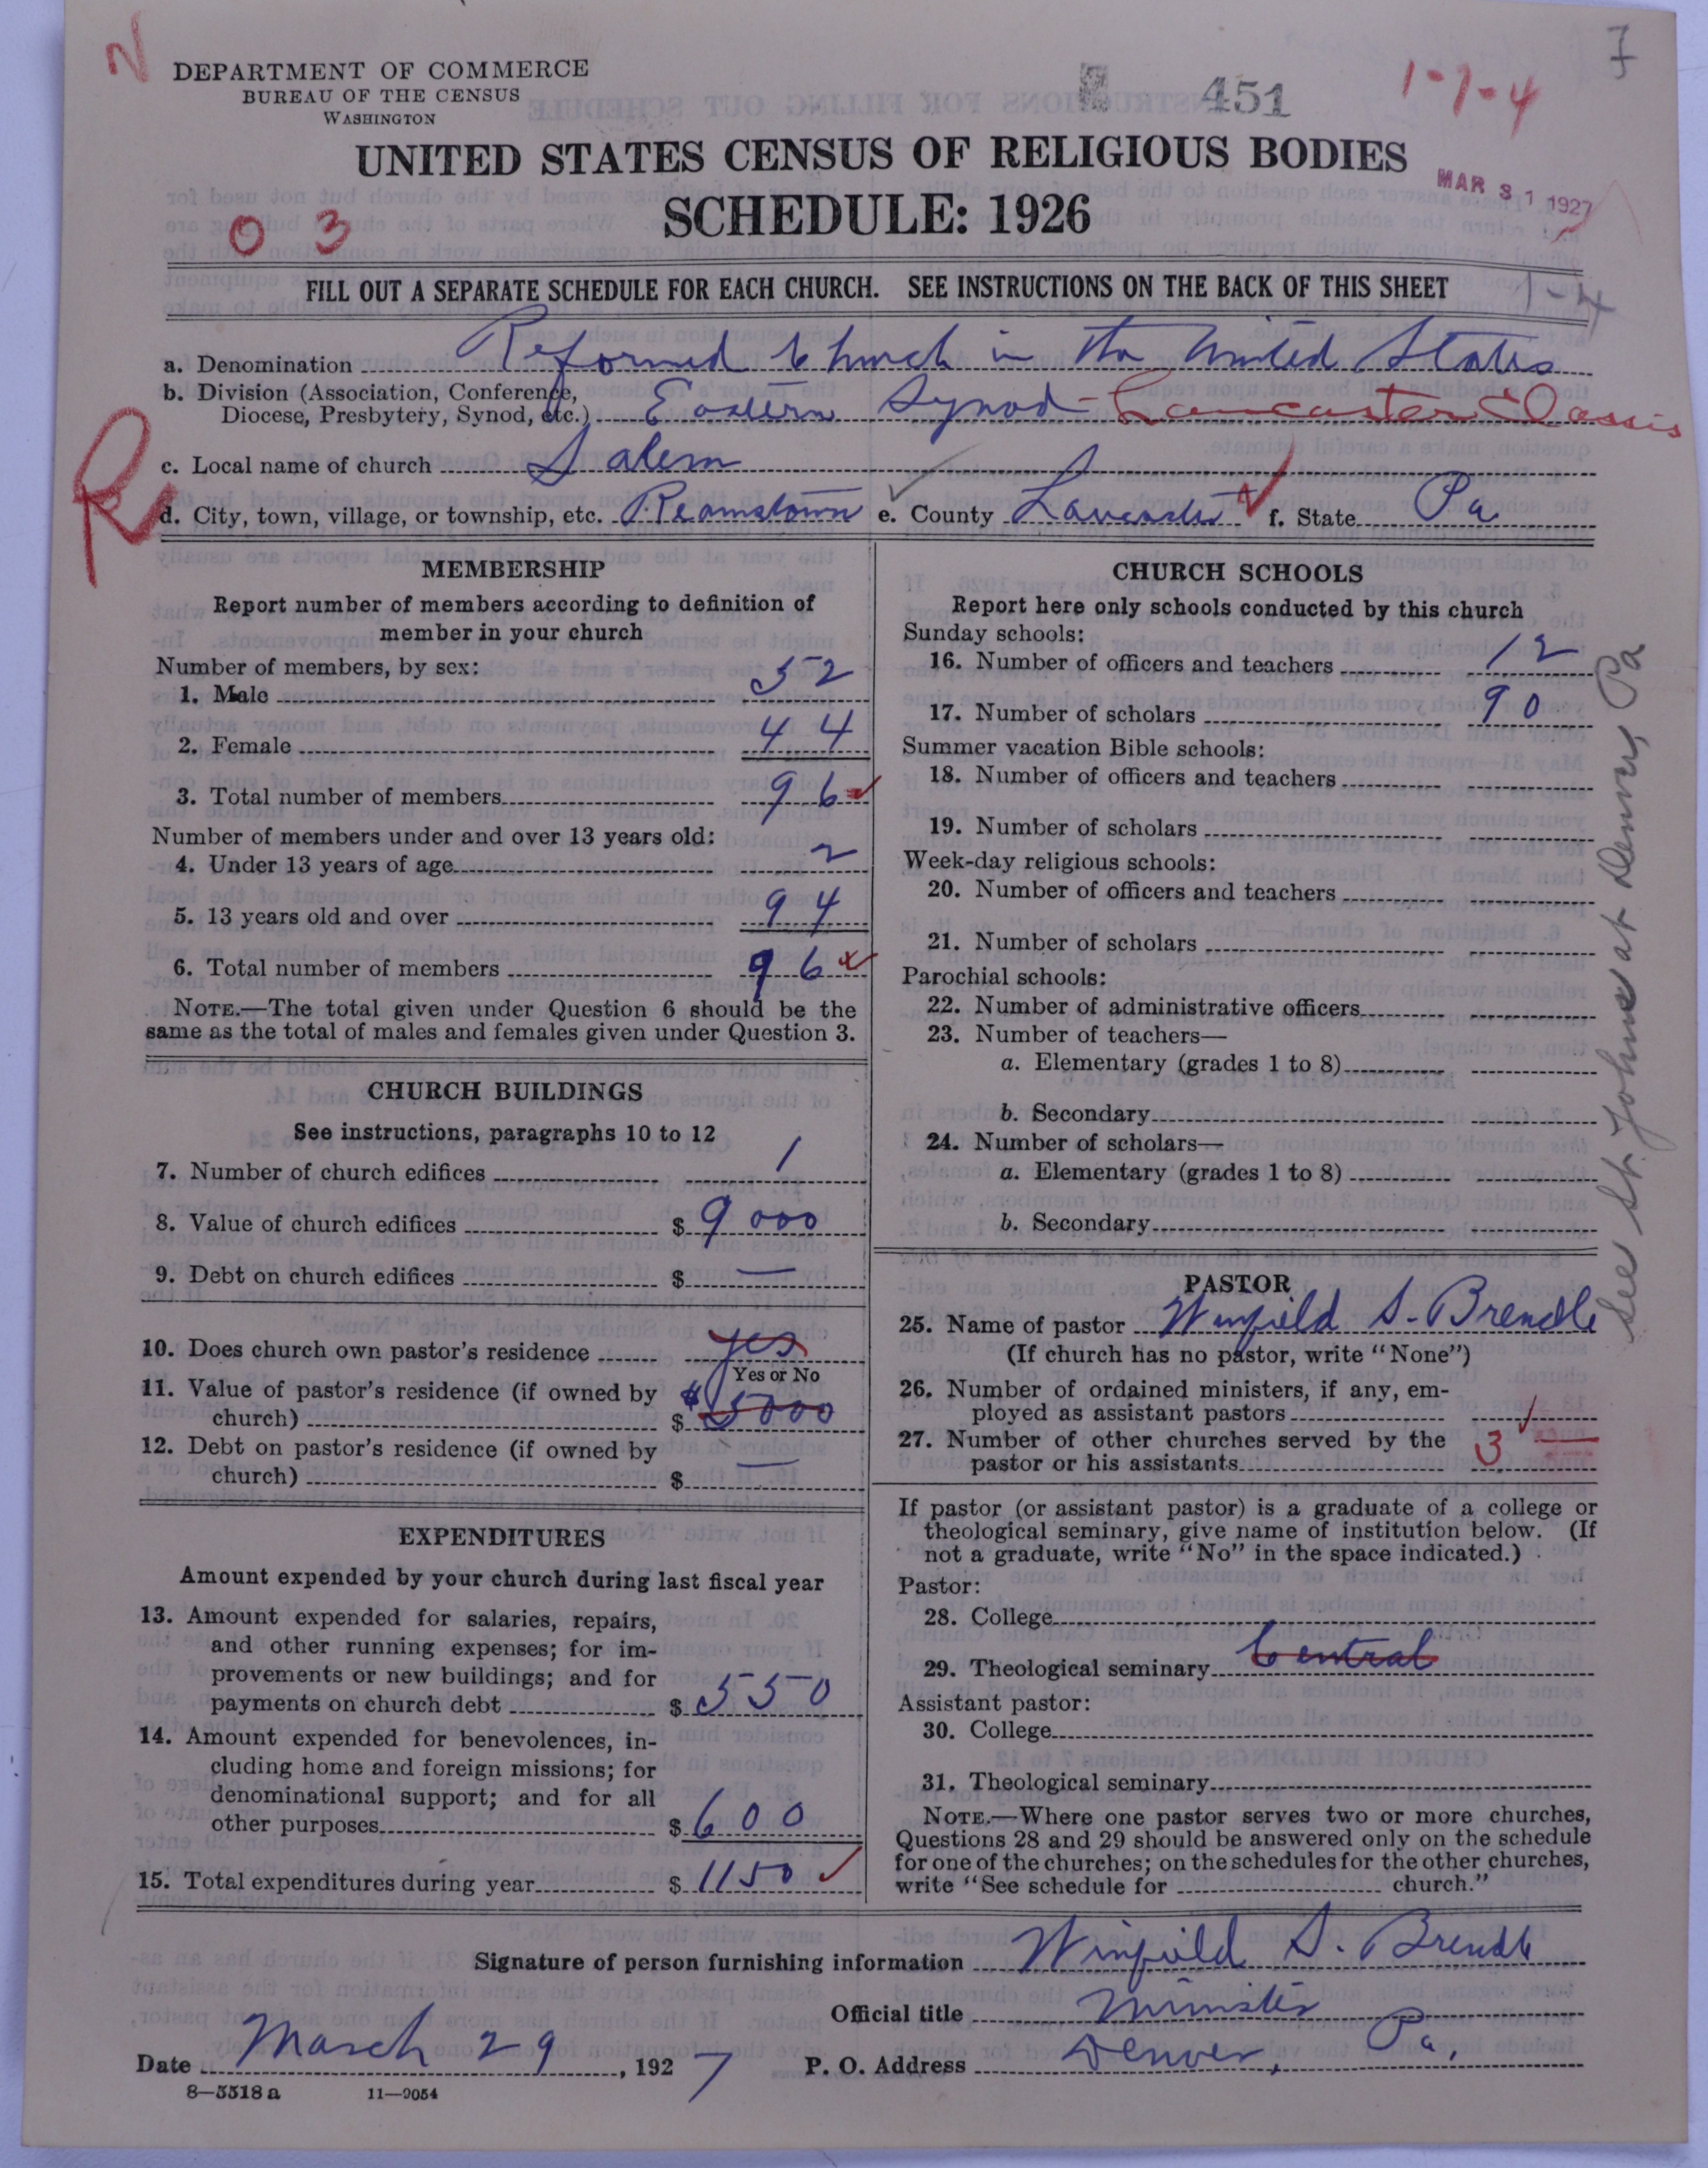 N
DEPARTMENT OF COMMERCE
BUREAU OF THE CENSUS
WASHINGTON
451
1-7-4
7
UNITED STATES CENSUS OF RELIGIOUS BODIES
MAR 31 1927
SCHEDULE: 1926
0 3
FILL OUT A SEPARATE SCHEDULE FOR EACH CHURCH. SEE INSTRUCTIONS ON THE BACK OF THIS SHEET
1-4
a. Denomination Reformed Church in the United States
b. Division (Association, Conference,
Diocese, Presbytery, Synod, etc.) Eastern Synod - Lancaster Classis
c. Local name of church Salem
R
d. City, town, village, or township, etc. Reamstown e. County Lancaster f. State Pa
MEMBERSHIP
Report number of members according to definition of
member in your church
Number of members, by sex:
1. Male 52
2. Female 44
3. Total number of members 96
Number of members under and over 13 years old:
4. Under 13 years of age 2
5. 13 years old and over 94
6. Total number of members 96
NOTE.—The total given under Question 6 should be the
same as the total of males and females given under Question 3.
CHURCH BUILDINGS
See instructions, paragraphs 10 to 12
7. Number of church edifices 1
8. Value of church edifices $ 9000
9. Debt on church edifices $ —
10. Does church own pastor's residence yes
Yes or No
11. Value of pastor's residence (if owned by
church) $ 5000
12. Debt on pastor's residence (if owned by
church) $ —
EXPENDITURES
Amount expended by your church during last fiscal year
13. Amount expended for salaries, repairs,
and other running expenses; for im-
provements or new buildings; and for
payments on church debt $ 550
14. Amount expended for benevolences, in-
cluding home and foreign missions; for
denominational support; and for all
other purposes $ 600
15. Total expenditures during year $ 1150
CHURCH SCHOOLS
Report here only schools conducted by this church
Sunday schools:
16. Number of officers and teachers 12
17. Number of scholars 90
Summer vacation Bible schools:
18. Number of officers and teachers
19. Number of scholars
Week-day religious schools:
20. Number of officers and teachers
21. Number of scholars
Parochial schools:
22. Number of administrative officers
23. Number of teachers—
a. Elementary (grades 1 to 8)
b. Secondary
24. Number of scholars—
a. Elementary (grades 1 to 8)
b. Secondary
See St. Johns at Denver, Pa
PASTOR
25. Name of pastor Winfield S. Brendle
(If church has no pastor, write "None")
26. Number of ordained ministers, if any, em-
ployed as assistant pastors
27. Number of other churches served by the
pastor or his assistants 3
If pastor (or assistant pastor) is a graduate of a college or
theological seminary, give name of institution below. (If
not a graduate, write "No" in the space indicated.)
Pastor:
28. College
29. Theological seminary Central
Assistant pastor:
30. College
31. Theological seminary
NOTE.—Where one pastor serves two or more churches,
Questions 28 and 29 should be answered only on the schedule
for one of the churches; on the schedules for the other churches,
write "See schedule for church."
Signature of person furnishing information Winfield S. Brendle
Official title Minister
Date March 29, 1927 P. O. Address Denver, Pa.
8—5518 a 11—9054